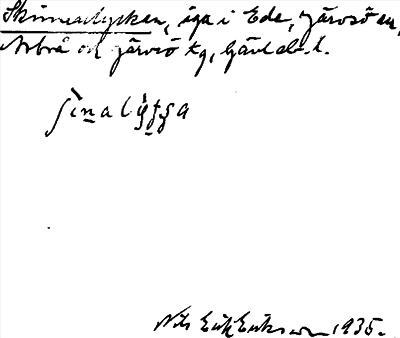 Skinnarlyckan, äga i Ede, Järvsö sn,
Arbrå och Järvsö tg, Gävleb. l.
ʃìn̲alýt̲ʃa
Nils Erik Eriksson 1935.